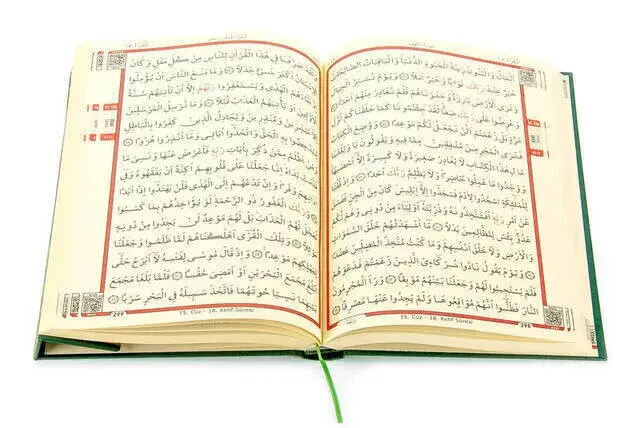 اَلْمَالُ وَالْبَنُونَ زِينَةُ الْحَيٰوةِ الدُّنْيَا وَالْبَاقِيَاتُ الصَّالِحَاتُ
خَيْرٌ عِنْدَ رَبِّكَ ثَوَابًا وَخَيْرٌ اَمَلًا وَيَوْمَ نُسَيِّرُ الْجِبَالَ
وَتَرَى الْاَرْضَ بَارِزَةً وَحَشَرْنَاهُمْ فَلَمْ نُغَادِرْ مِنْهُمْ اَحَدًا
وَعُرِضُوا عَلٰى رَبِّكَ صَفًّا لَقَدْ جِئْتُمُونَا كَمَا خَلَقْنَاكُمْ اَوَّلَ
مَرَّةٍ بَلْ زَعَمْتُمْ اَلَّنْ نَجْعَلَ لَكُمْ مَوْعِدًا وَوُضِعَ الْكِتَابُ
فَتَرَى الْمُجْرِمِينَ مُشْفِقِينَ مِمَّا فِيهِ وَيَقُولُونَ يَا وَيْلَتَنَا
مَالِ هٰذَا الْكِتَابِ لَا يُغَادِرُ صَغِيرَةً وَلَا كَبِيرَةً اِلَّا اَحْصٰيهَا
وَوَجَدُوا مَا عَمِلُوا حَاضِرًا وَلَا يَظْلِمُ رَبُّكَ اَحَدًا وَاِذْ قُلْنَا
لِلْمَلٰئِكَةِ اسْجُدُوا لِاٰدَمَ فَسَجَدُوا اِلَّا اِبْلِيسَ كَانَ مِنَ الْجِنِّ فَفَسَقَ
عَنْ اَمْرِ رَبِّهِ اَفَتَتَّخِذُونَهُ وَذُرِّيَّتَهُ اَوْلِيَاءَ مِنْ دُونِي وَهُمْ لَكُمْ
عَدُوٌّ بِئْسَ لِلظَّالِمِينَ بَدَلًا مَا اَشْهَدْتُهُمْ خَلْقَ السَّمٰوَاتِ
وَالْاَرْضِ وَلَا خَلْقَ اَنْفُسِهِمْ وَمَا كُنْتُ مُتَّخِذَ الْمُضِلِّينَ عَضُدًا
وَيَوْمَ يَقُولُ نَادُوا شُرَكَاءِيَ الَّذِينَ زَعَمْتُمْ فَدَعَوْهُمْ
فَلَمْ يَسْتَجِيبُوا لَهُمْ وَجَعَلْنَا بَيْنَهُمْ مَوْبِقًا وَرَاَ الْمُجْرِمُونَ
النَّارَ فَظَنُّوا اَنَّهُمْ مُوَاقِعُوهَا وَلَمْ يَجِدُوا عَنْهَا مَصْرِفًا
15. Cüz - 18. Kehf Sûresi
298
صَرَّفْنَا فِي هٰذَا الْقُرْاٰنِ لِلنَّاسِ مِنْ كُلِّ مَثَلٍ وَكَانَ
الْاِنْسَانُ اَكْثَرَ شَيْءٍ جَدَلًا وَمَا مَنَعَ النَّاسَ اَنْ يُؤْمِنُوا
جَاءَهُمُ الْهُدٰى وَيَسْتَغْفِرُوا رَبَّهُمْ اِلَّا اَنْ تَأْتِيَهُمْ سُنَّةُ
الْاَوَّلِينَ اَوْ يَأْتِيَهُمُ الْعَذَابُ قُبُلًا وَمَا نُرْسِلُ الْمُرْسَلِينَ
مُبَشِّرِينَ وَمُنْذِرِينَ وَيُجَادِلُ الَّذِينَ كَفَرُوا بِالْبَاطِلِ
لِيُدْحِضُوا بِهِ الْحَقَّ وَاتَّخَذُوا اٰيَاتِي وَمَا اُنْذِرُوا هُزُوًا
اَظْلَمُ مِمَّنْ ذُكِّرَ بِاٰيَاتِ رَبِّهِ فَاَعْرَضَ عَنْهَا وَنَسِيَ مَا
قَدَّمَتْ يَدَاهُ اِنَّا جَعَلْنَا عَلٰى قُلُوبِهِمْ اَكِنَّةً اَنْ يَفْقَهُوهُ وَفِي
اٰذَانِهِمْ وَقْرًا وَاِنْ تَدْعُهُمْ اِلَى الْهُدٰى فَلَنْ يَهْتَدُوا اِذًا اَبَدًا
وَرَبُّكَ الْغَفُورُ ذُو الرَّحْمَةِ لَوْ يُؤَاخِذُهُمْ بِمَا كَسَبُوا
لَعَجَّلَ لَهُمُ الْعَذَابَ بَلْ لَهُمْ مَوْعِدٌ لَنْ يَجِدُوا مِنْ دُونِهِ
وَتِلْكَ الْقُرٰى اَهْلَكْنَاهُمْ لَمَّا ظَلَمُوا وَجَعَلْنَا
لِمَهْلِكِهِمْ مَوْعِدًا وَاِذْ قَالَ مُوسٰى لِفَتٰيهُ لَا اَبْرَحُ حَتّٰى
اَبْلُغَ مَجْمَعَ الْبَحْرَيْنِ اَوْ اَمْضِيَ حُقُبًا فَلَمَّا بَلَغَا مَجْمَعَ
بَيْنِهِمَا نَسِيَا حُوتَهُمَا فَاتَّخَذَ سَبِيلَهُ فِي الْبَحْرِ سَرَبًا
15. Cüz - 18. Kehf Sûresi
299